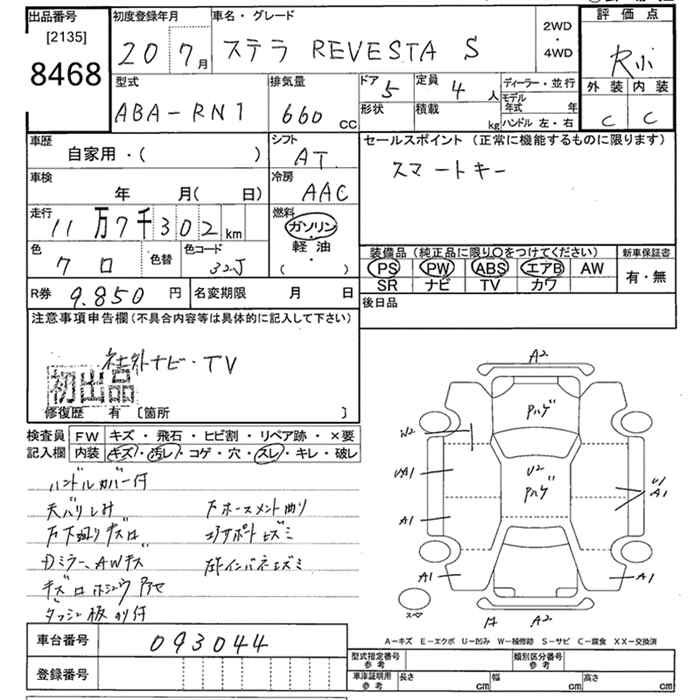 出品番号
[2135]
8468
初度登録年月
20 7月
車名・グレード
ステラ REVESTA S
2WD
・
4WD
評価点
外装 内装
C C
型式
ABA-RN1
排気量
660 CC
ドア 5
形状
定員 4 人
積載 kg
ディーラー・並行
モデル年式 年
ハンドル 左・右
車歴
自家用・( )
シフト
AT
セールスポイント (正常に機能するものに限ります)
スマートキー
車検
年 月( 日)
冷房
AAC
走行
11万7千302 km
燃料
ガソリン
・
軽油
・
( )
色
クロ 色替
色コード
32J
装備品 (純正品に限り○をつけてください)
PS PW ABS エアB AW
SR ナビ TV カワ
新車保証書
有・無
R券 9.850 円
名変期限 月 日
後日品
注意事項申告欄 (不具合内容等は具体的に記入して下さい)
社外ナビ・TV
初出品
修復歴 有 [箇所 ]
検査員 FW キズ・飛石・ヒビ割・リペア跡・×要
記入欄 内装 キズ・汚レ・コゲ・穴・スレ・キレ・破レ
ハンドルカバー付
天バリシミ
Dミラー、AWキズ
A2
W2
U2
A1
A1
A1
A1
A2
A-キズ E-エクボ U-凹み W-補修跡 S-サビ C-腐食 XX-交換済
車台番号 093044
登録番号
型式指定番号 参考
類別区分番号 参考
車庫証明用 参考 長さ cm 幅 cm 高さ cm